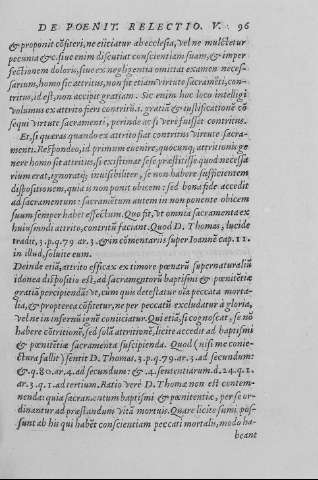 DE POENIT. RELECTIO. V. 96
& proponit cõfiteri, ne eiiciatur ab ecclesia, vel ne mulctetur
pecunia &c. siue enim discutiat conscientiam suam, & imper
fectionem doloris, siue ex negligentia omittat examen neces-
sarium, homo sic attritus, non fit etiam virtute sacramẽti, con-
tritus, id est, non accipit gratiam. Sic enim hoc loco intelligi
volumus ex attrito fieri contritũ .s. gratiã & iustificationẽ cõ
sequi virtute sacramenti, perinde ac si verè fuisset contritus.
Et, si quæras quando ex attrito fiat contritus virtute sacra-
menti. Respõdeo, id primum euenire, quocunq; attritionis ge
nere homo sit attritus, si existimat sese præstitisse quod necessa
rium erat, ignoratq; inuisibiliter, se non habere sufficientem
dispositionem, quia is non ponit obicem: sed bona fide accedit
ad sacramentum: sacramẽtum autem in non ponente obicem
suum semper habet effectum. Quo fit, vt omnia sacramenta ex
huiusmodi attrito, contritũ faciant. Quod D. Thomas, lucide
tradit, 3. p. q. 79 ar. 3. & in cõmentariis super Ioannẽ cap. 11.
in illud, soluite eum.
Deinde etiã, attritio efficax ex timore pœnarũ supernaturaliũ
idonea dispositio est, ad sacramentorũ baptismi & pœnitẽtiæ
gratiã percipiendã: vt, cum quis detestatur oĩa peccata morta-
lia, & propterea cõfitetur, ne per peccatũ excludatur à gloria,
vel ne in infernũ ignẽ coniiciatur. Qui etiã, si cognoscat, se nõ
habere cõtritionẽ, sed solã attritionẽ, licite accedit ad baptismi
& pœnitẽtiæ sacramẽta suscipienda. Quod (nisi me coniec-
tura fallit) sentit D. Thomas. 3. p. q. 79. ar. 3. ad secundum:
& q. 80. ar. 4. ad secundum: & .4. sententiarum. d. 24. q. 1.
ar. 3. q. 1. ad tertium. Ratio verè D. Thomæ non est contem-
nenda: quia sacramentum baptismi & pœnitentiæ, per se or-
dinantur ad præstandum vitã mortuis. Quare licite sumi pos-
sunt ab his qui habẽt conscientiam peccati mortalis, modo ha-
beant